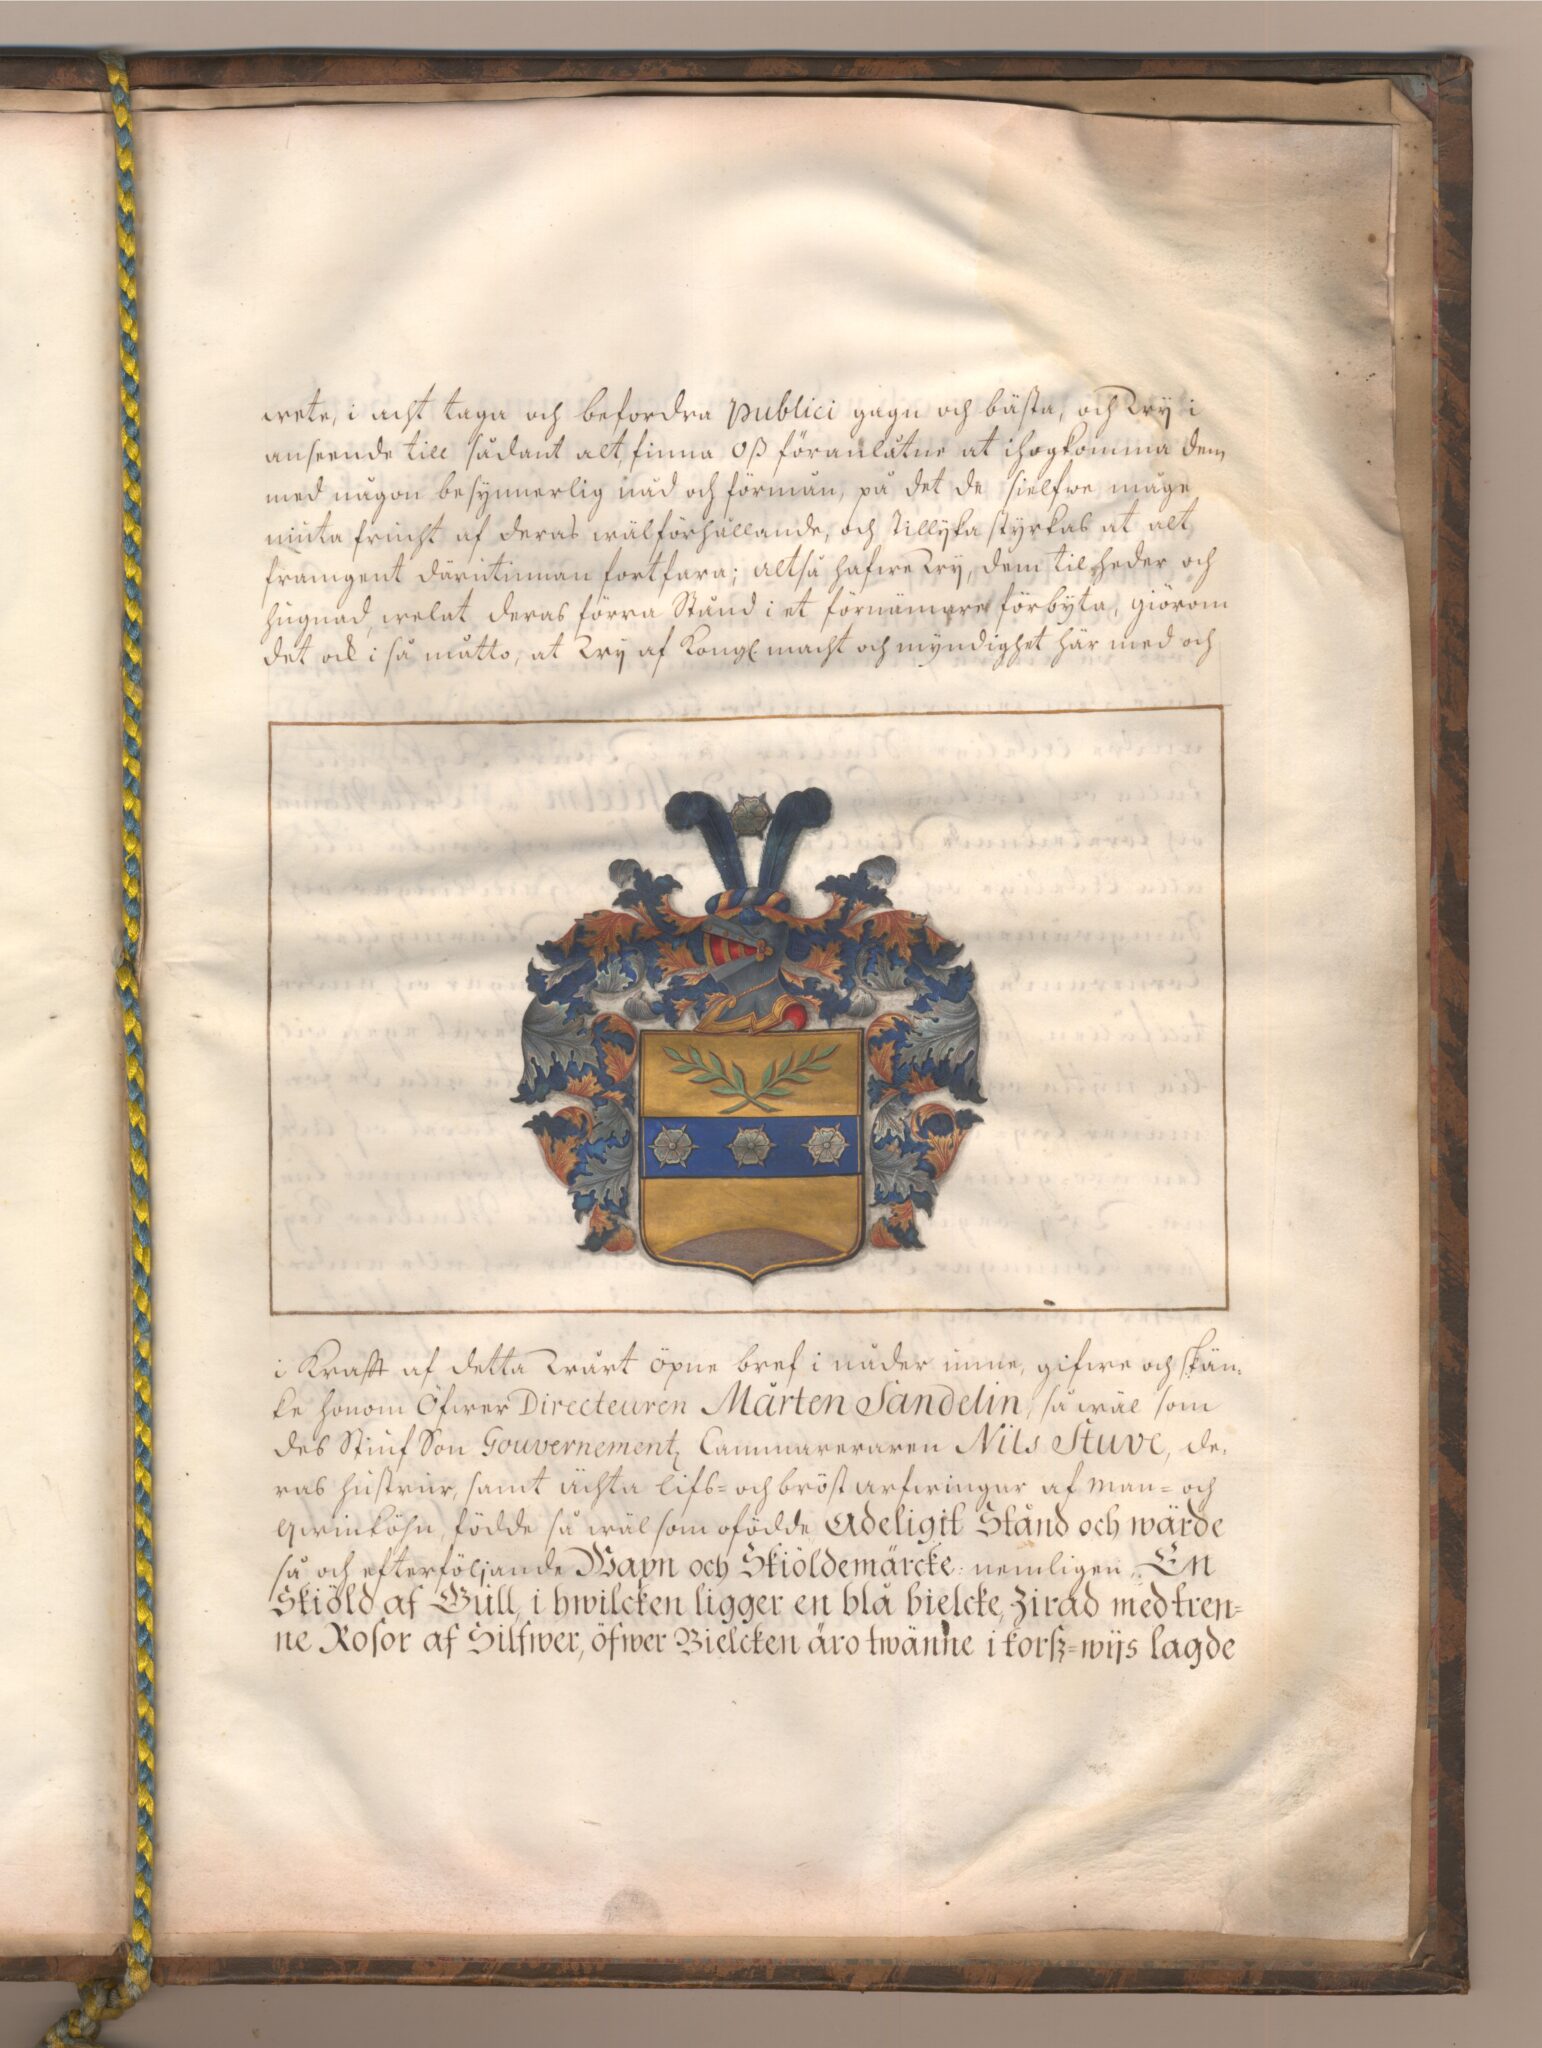 wete, i acht taga och befordra Publici gagn och bästa, och Wy i
anseende till sådant alt, finna Oß föranlåtne at ihogkomma dem,
med någon besynnerlig nåd och förmån, på det de sielfwe måge
niuta frucht af deras wälförhållande, och tillyka styrkas at alt
framgent därutinnan fortfara; altså hafwe Wy, dem til heder och
hugnad, welat deras förra Stånd i et förnämare förbyta, giörom
det ock i så måtto, at Wy af Kongl macht och myndighet här med och
i Krafft af detta Wårt öpne bref i nåder unne, gifwe och skän-
ke honom Öfwer Directeuren Mårten Sandelin, så wäl som
des Stiuf Son Gouvernementz Cammereraren Nils Stuve, de-
ras hustrur, samt ächta lifs= och bröst arfwingar af man= och
qwinköhn, födde så wäl som ofödde Adeligit Stånd och wärde
så och efterföljande Wapn och Skiöldemärcke: nemligen, En
Skiöld af Gull, i hwilcken ligger en blå bielcke, Zirad med tren=
ne Rosor af Silfwer, öfwer Bielcken äro twänne i korß=wijs lagde